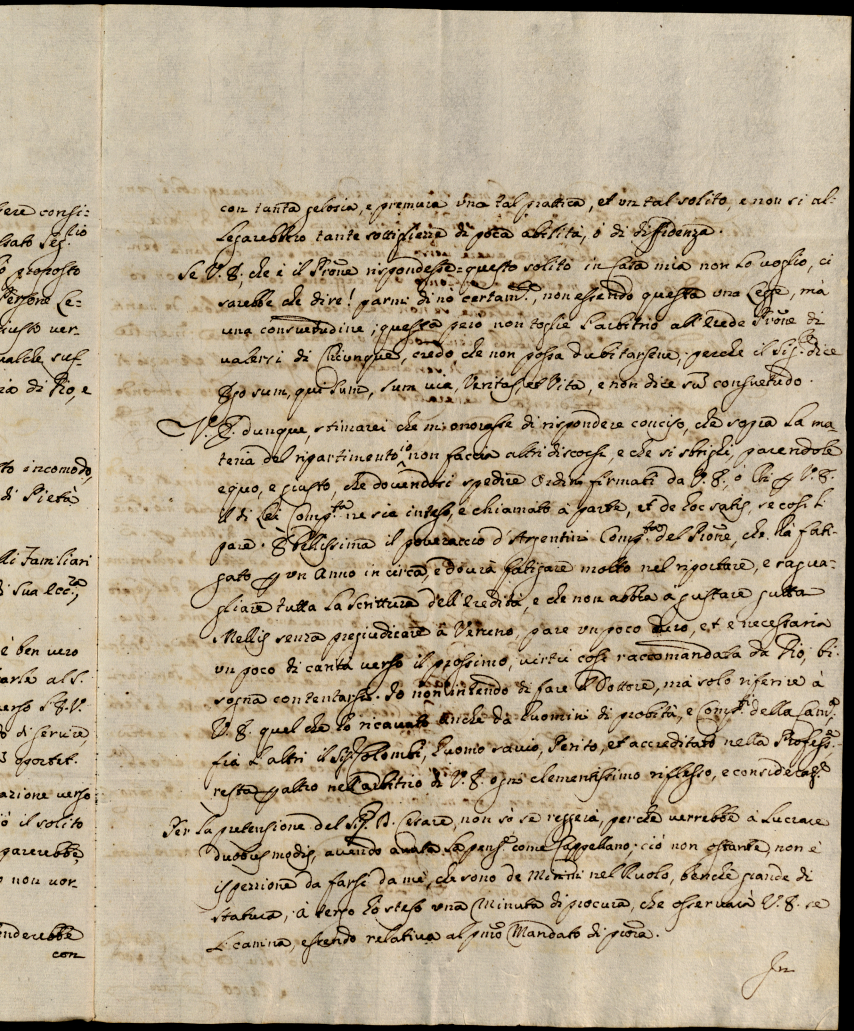 bere consi:
glio
lsato seg.
ò proposto
Persone Le:
giusto ver:
qualche suf:
ria di Pio, e
to incomodo,
di Pietà
lli Familiari
Sua Ecc.za,
è ben vero
parle al S.
verso S.E.V.
di servire,
oportet.
azione verso
iò il solito
parerebbe,
o non vor:
enderebbe
con
con tanta gelosia, e premura una tal prattica, et un tal solito, e non si al:
legarebbero tante sottigliezze di poca abilità, ò di diffidenza.
Se V.E., che è il Prone rispondesse = questo solito in Casa mia non lo voglio, ci
sarebbe che dire! parmi di nò certam.e, non essendo questa una Legge, mà
una consuetudine; questa però non toglie l'arbitrio all'Erede Prone di
valersi di Chiunque, credo, che non possa dubitarsene; perche il Sig.re dice
Ego sum, qui sum, sum via, Veritas, et Vita, e non dice sũ consuetudo.
V.E. dunque, stimarei che mi onorasse di rispondere conciso, che sopra la ma:
teria del ripartimento io non faccia altri discorsi, e che si sbrighi, parendole
equo, e giusto, che dovendosi spedire Ordini firmati da V.E., ò Chi p V.E.
il di Lei Comp.ta ne sia inteso, e chiamato à parte, et de hoc satis, se così li
pare. Bellissima il poveraccio d'Argentini Comp.ta del Prone, che hà fati:
gato p un Anno in circa, e dovrà fatigare molto nel riportare, e ragua:
gliare tutta la scrittura dell'Eredità, e che non abbia à gustare gutta
Mellis senza pregiudicare à Veruno, pare un poco duro, et è necessaria
un poco di carità verso il prossimo, virtù così raccomandata da Dio, bi:
sogna contentarsi. Io non intendo di fare il Dottore, mà solo riferire à
V.E. quel che hò ricavato anche da Huomini di probità, e Comp.ti della Cam.a
frà l'altri il Sig.r Colombi, Huomo savio, Perito, et accreditato nella Profess.e
resta p altro nell'arbitrio di V.E. ogni clementissimo riflesso, e consideraz.e
Per la pretensione del Sig. D. Cesare, non sò se reggerà, perche verrebbe à lucrare
duobus modis, avendo avuta la pens.e come Cappellano; ciò non ostante, non è
ispezione da farsi da mè, che sono de Minimi nel Ruolo, benche grande di
statura; à tergo hò steso una Minuta di procura, che osservarà V.E. se
camina, essendo relativa al pmo Mandato di procra.
In